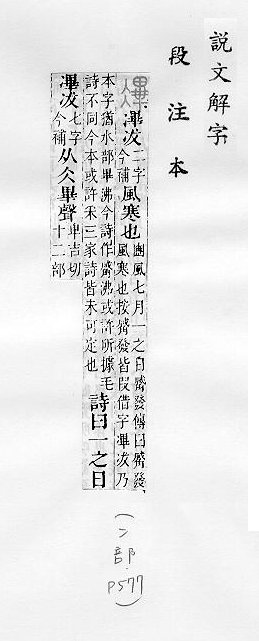 說文解字
段注本
㓖
㓖冹二字今補風寒也豳風七月一之日觱發傳曰觱發風寒也按觱發皆叚借字㓖冹乃
本字猶水部畢沸今詩作觱沸或許所據毛詩不同今本或許采三家詩皆未可定也詩曰一之日
㓖冹七字今補从仌畢聲卑吉切十二部
(冫部.P577)